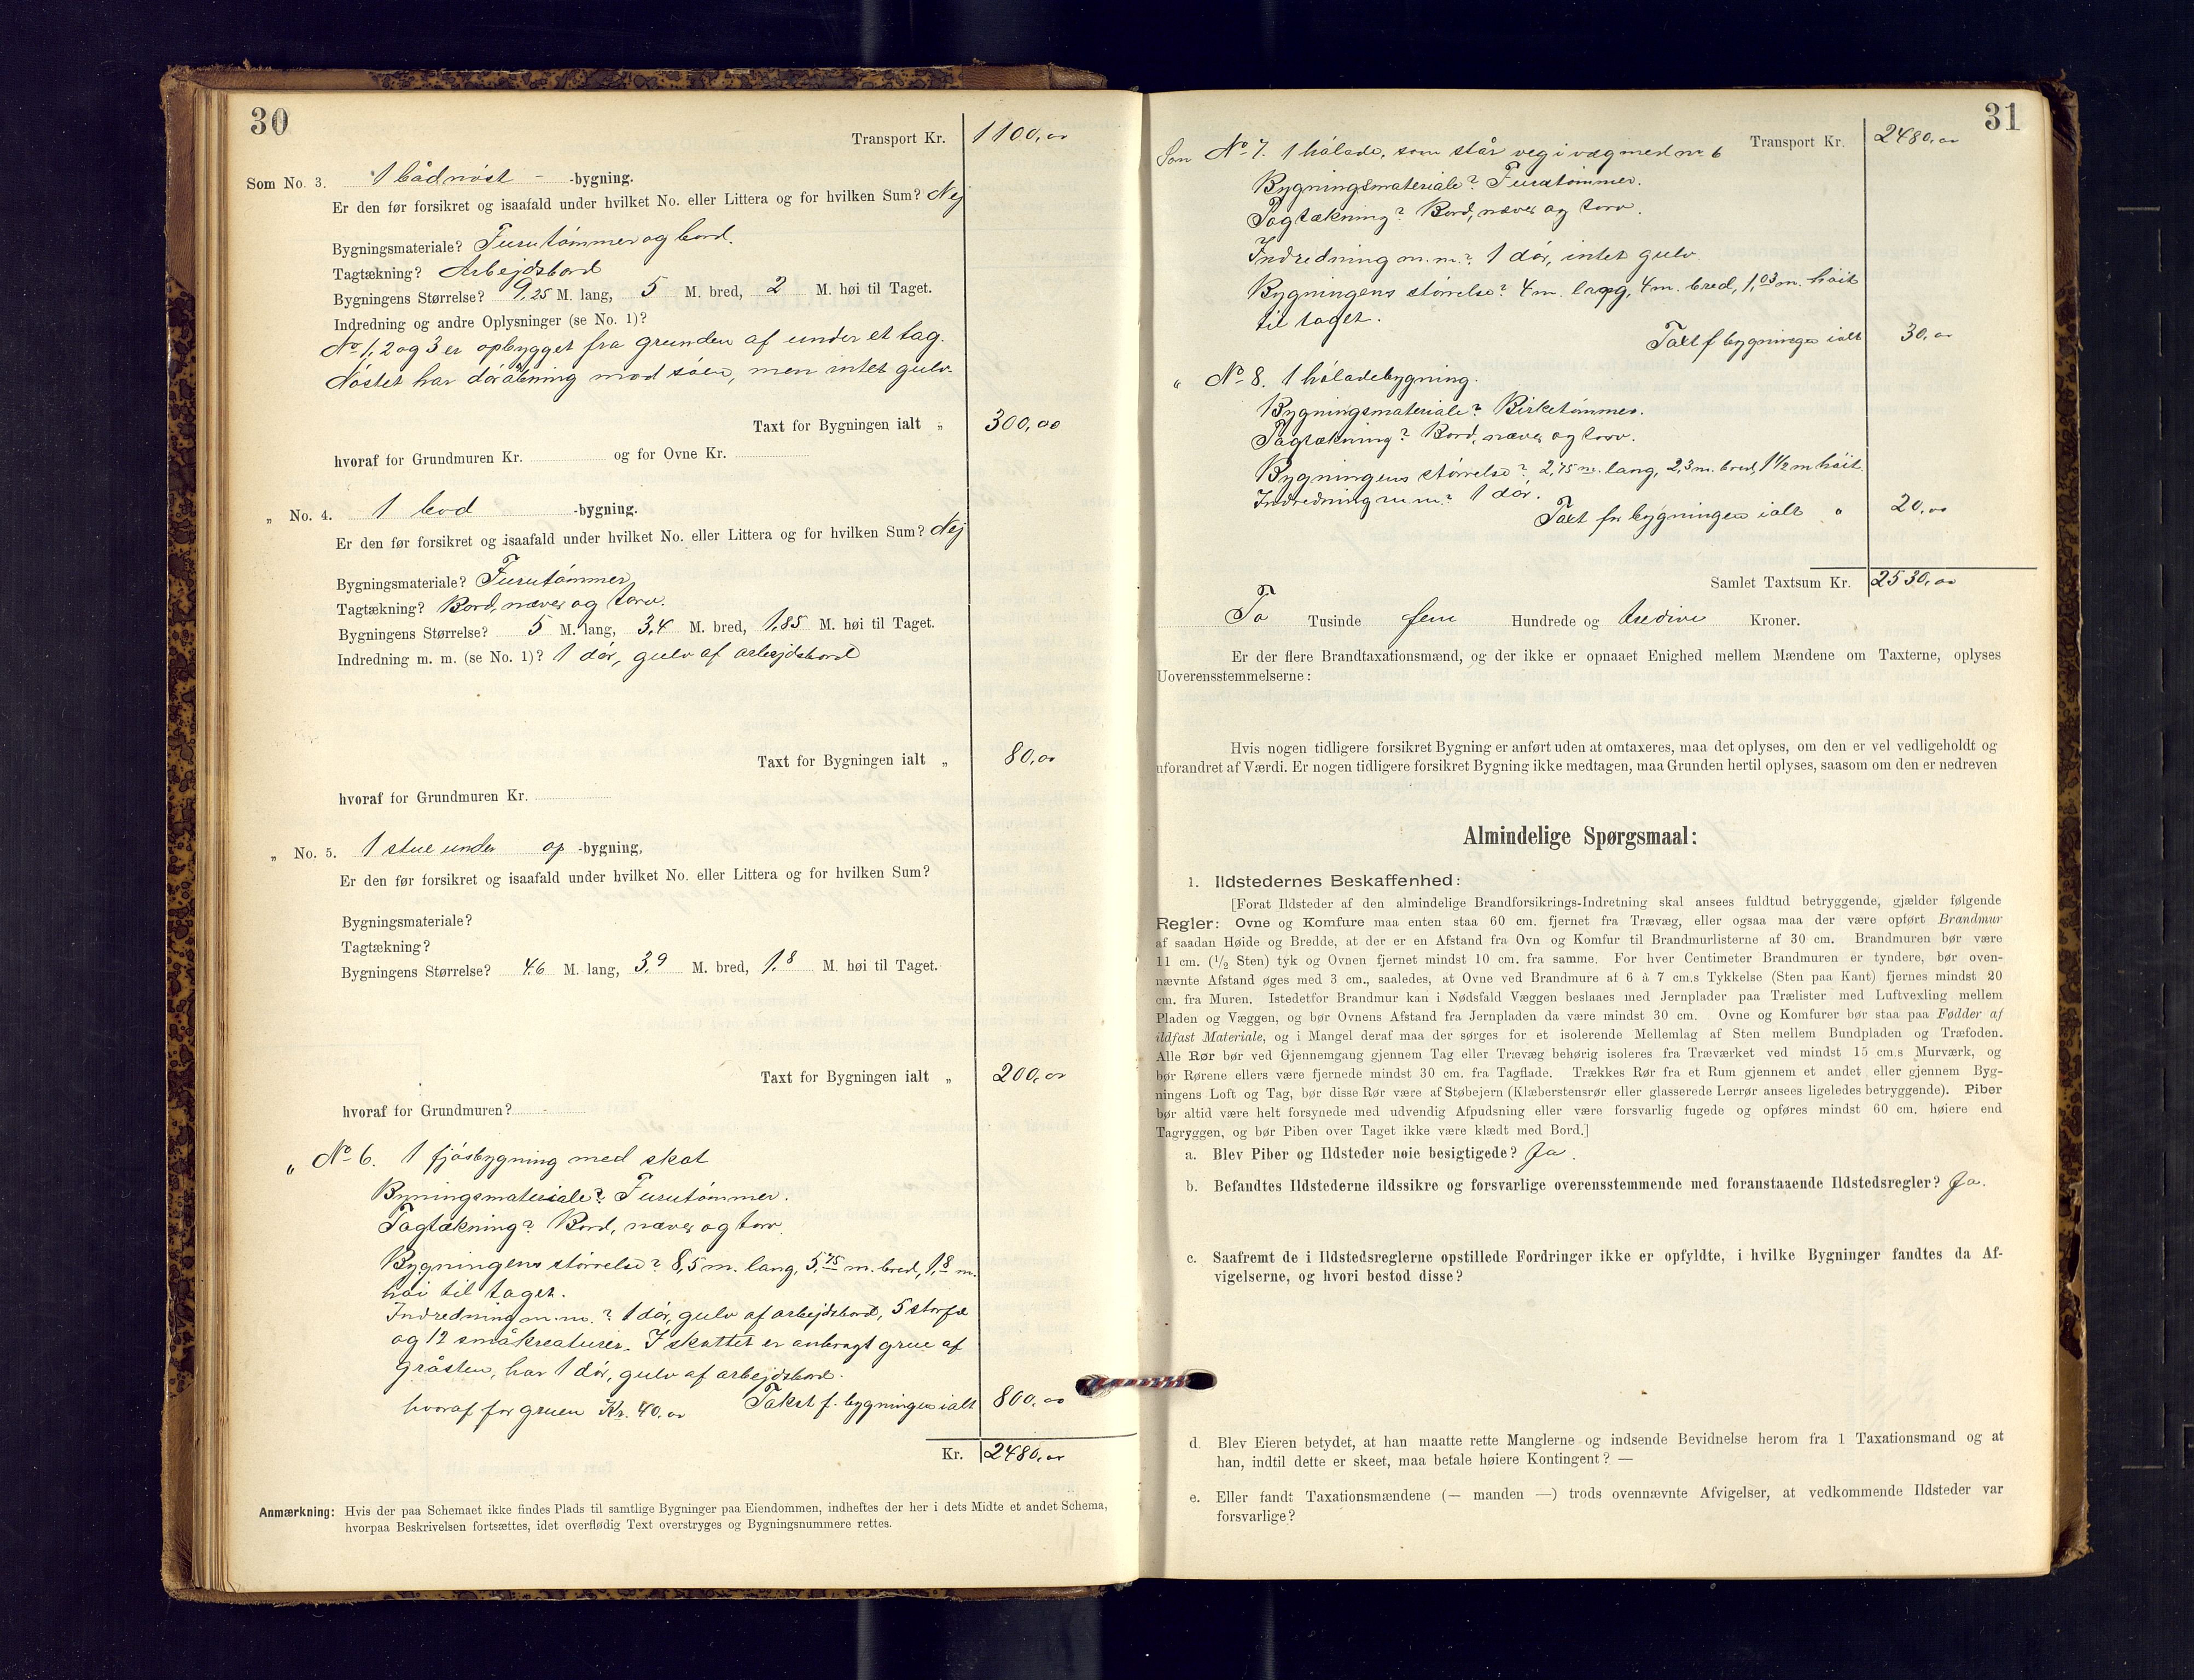 30
Transport Kr. 1100,00
Som No. 3. 1 bådnøst - -bygning.
Er den før forsikret og isaafald under hvilket No. eller Littera og for hvilken Sum? Nej
Bygningsmateriale? Furutømmer og bord.
Tagtækning? Arbejdsbord
Bygningens Størrelse? 9,25 M. lang, 5 M. bred, 2 M. høi til Taget.
Indredning og andre Oplysninger (se No. 1)?
No 1, 2 og 3 er opbygget fra grunden af under et tag.
Nøstet har døråbning mod søen, men intet gulv.
Taxt for Bygningen ialt „ 300,00
hvoraf for Grundmuren Kr. og for Ovne Kr.
„ No. 4. 1 bod -bygning.
Er den før forsikret og isaafald under hvilket No. eller Littera og for hvilken Sum? Nej
Bygningsmateriale? Furutømmer
Tagtækning? Bord, næver og torv.
Bygningens Størrelse? 5 M. lang, 3,4 M. bred, 1,85 M. høi til Taget.
Indredning m. m. (se No. 1)? 1 dør, gulv af arbejdsbord
Taxt for Bygningen ialt „ 80,00
hvoraf for Grundmuren Kr.
„ No. 5. 1 stue under op -bygning,
Er den før forsikret og isaafald under hvilket No. eller Littera og for hvilken Sum?
Bygningsmateriale?
Tagtækning?
Bygningens Størrelse? 4.6 M. lang, 3,9 M. bred, 1,8 M. høi til Taget.
Taxt for Bygningen ialt „ 200,00
hvoraf for Grundmuren?
„ No 6. 1 fjøsbygning med skot
Bygningsmateriale? Furutømmer.
Tagtækning? Bord, næver og torv
Bygningens størrelse? 8,5 m. lang, 5,75 m. bred, 1,8 m.
høi til taget.
Indredning m.m.? 1 dør, gulv af arbejdsbord, 5 storfæ
og 12 småkreaturer. I skottet er anbragt grue af
gråsten, har 1 dør, gulv af arbejdsbord.
hvoraf for gruen Kr. 40,00 Takst f. bygningen ialt 800,00
Kr. 2480,00
Anmærkning: Hvis der paa Schemaet ikke findes Plads til samtlige Bygninger paa Eiendommen, indheftes der her i dets Midte et andet Schema,
hvorpaa Beskrivelsen fortsættes, idet overflødig Text overstryges og Bygningsnummere rettes.
31
Transport Kr. 2480,00
Som No 7. 1 hølade, som står veg i væg med no 6
Bygningsmateriale? Furutømmer.
Tagtækning? Bord, næver og torv.
Indredning m.m.? 1 dør, intet gulv
Bygningens størrelse? 4 m. lang, 4 m. bred, 1,03 m. høit
til taget.
Taxt f bygningen ialt 30,00
„ No 8. 1 høladebygning.
Bygningsmateriale? Birketømmer.
Tagtækning? Bord, næver og torv.
Bygningens størrelse? 2,75 m. lang, 2,3 m. bred, 1 1/2 m høit.
Indredning m m? 1 dør.
Taxt for bygningen ialt „ 20,00
Samlet Taxtsum Kr. 2530,00
To Tusinde fem Hundrede og tredive Kroner.
Er der flere Brandtaxationsmænd, og der ikke er opnaaet Enighed mellem Mændene om Taxterne, oplyses
Uoverensstemmelserne:
Hvis nogen tidligere forsikret Bygning er anført uden at omtaxeres, maa det oplyses, om den er vel vedligeholdt og
uforandret af Værdi. Er nogen tidligere forsikret Bygning ikke medtagen, maa Grunden hertil oplyses, saasom om den er nedreven
Almindelige Spørgsmaal:
1. Ildstedernes Beskaffenhed:
[Forat Ildsteder af den almindelige Brandforsikrings-Indretning skal ansees fuldtud betryggende, gjælder følgende
Regler: Ovne og Komfure maa enten staa 60 cm. fjernet fra Trævæg, eller ogsaa maa der være opført Brandmur
af saadan Høide og Bredde, at der er en Afstand fra Ovn og Komfur til Brandmurlisterne af 30 cm. Brandmuren bør være
11 cm. (1/2 Sten) tyk og Ovnen fjernet mindst 10 cm. fra samme. For hver Centimeter Brandmuren er tyndere, bør oven-
nævnte Afstand øges med 3 cm., saaledes, at Ovne ved Brandmure af 6 à 7 cm.s Tykkelse (Sten paa Kant) fjernes mindst 20
cm. fra Muren. Istedetfor Brandmur kan i Nødsfald Væggen beslaaes med Jernplader paa Trælister med Luftvexling mellem
Pladen og Væggen, og bør Ovnens Afstand fra Jernpladen da være mindst 30 cm. Ovne og Komfurer bør staa paa Fødder af
ildfast Materiale, og i Mangel deraf maa der sørges for et isolerende Mellemlag af Sten mellem Bundpladen og Træfoden.
Alle Rør bør ved Gjennemgang gjennem Tag eller Trævæg behørig isoleres fra Træværket ved mindst 15 cm.s Murværk, og
bør Rørene ellers være fjernede mindst 30 cm. fra Tagflade. Trækkes Rør fra et Rum gjennem et andet eller gjennem Byg-
ningens Loft og Tag, bør disse Rør være af Støbejern (Klæberstensrør eller glasserede Lerrør ansees ligeledes betryggende). Piber
bør altid være helt forsynede med udvendig Afpudsning eller være forsvarlig fugede og opføres mindst 60 cm. høiere end
Tagryggen, og bør Piben over Taget ikke være klædt med Bord.]
a. Blev Piber og Ildsteder nøie besigtigede? Ja.
b. Befandtes Ildstederne ildssikre og forsvarlige overensstemmende med foranstaaende Ildstedsregler? Ja.
c. Saafremt de i Ildstedsreglerne opstillede Fordringer ikke er opfyldte, i hvilke Bygninger fandtes da Af-
vigelserne, og hvori bestod disse?
d. Blev Eieren betydet, at han maatte rette Manglerne og indsende Bevidnelse herom fra 1 Taxationsmand og at
han, indtil dette er skeet, maa betale høiere Kontingent? —
e. Eller fandt Taxationsmændene (— manden —) trods ovennævnte Afvigelser, at vedkommende Ildsteder var
forsvarlige?